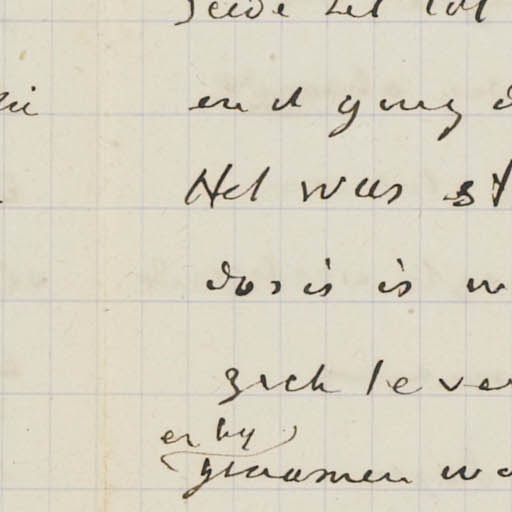 seide zet tot
en it ging d
Het was st
dosis is w
zich te ver
er by
genomen wa